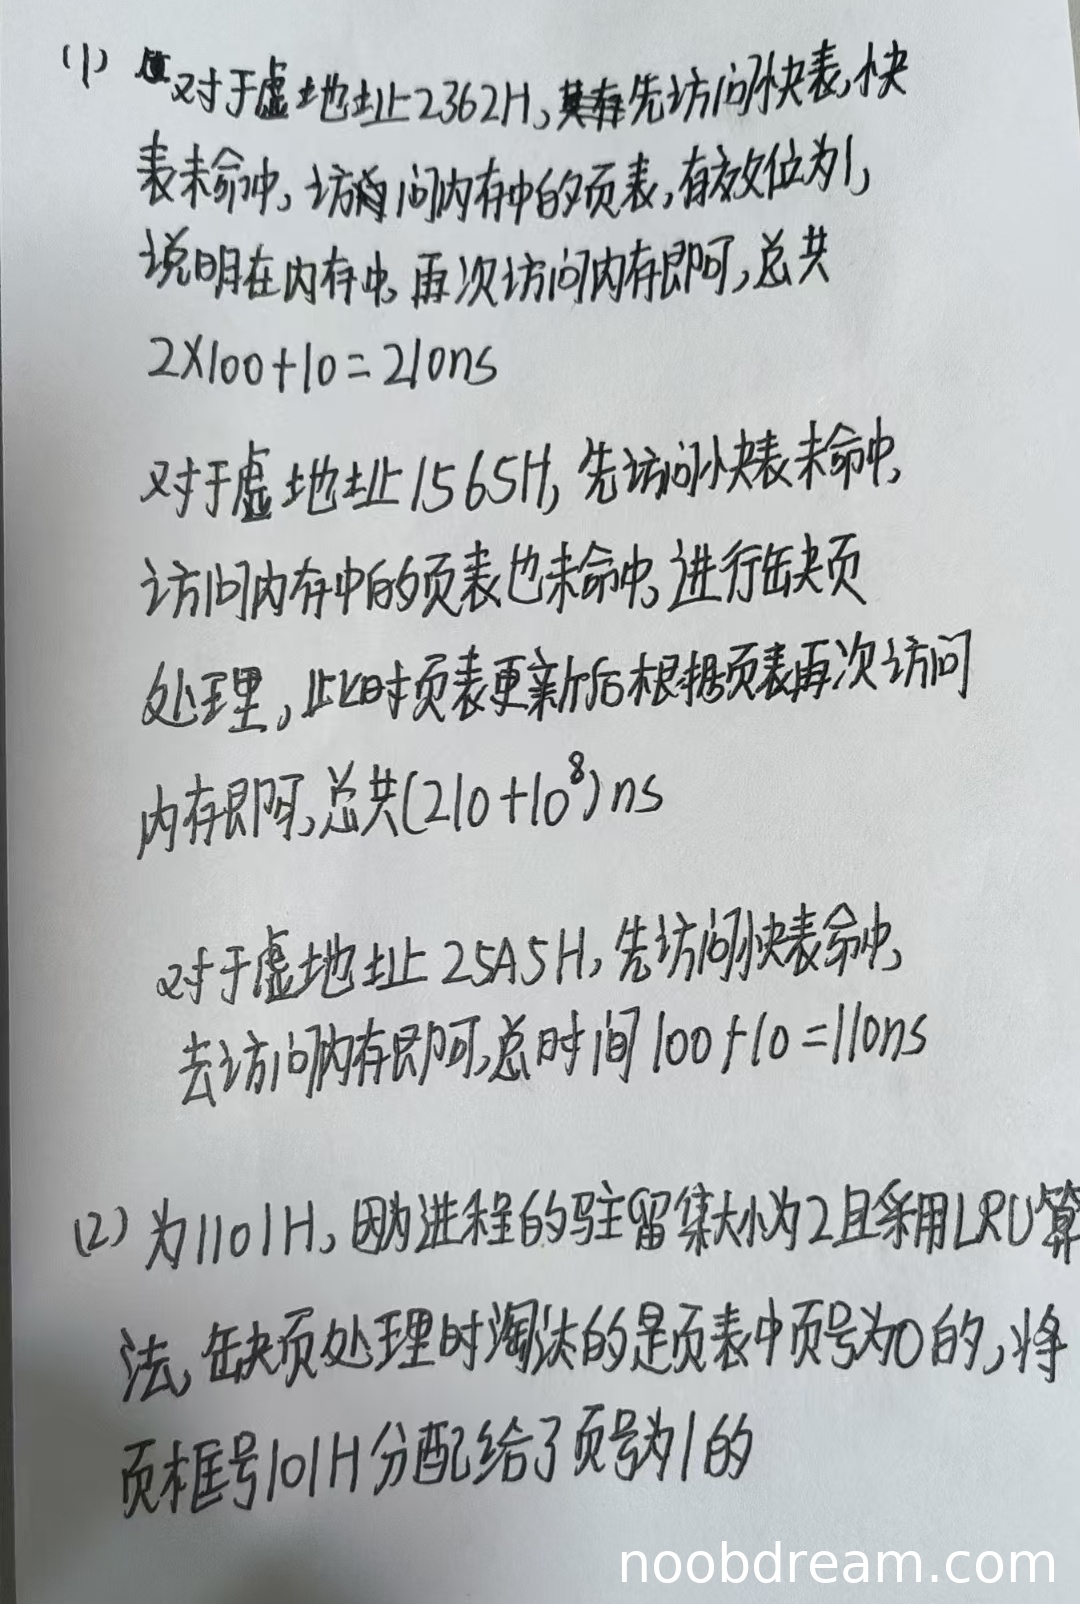 (1) 对于虚地址2362H,先访问快表,快
表未命中,访问内存中的页表,有效位为1,
说明在内存中,再次访问内存即可,总共
2×100+10=210ns
对于虚地址1565H,先访问快表未命中,
访问内存中的页表也未命中,进行缺页
处理,此时页表更新后根据页表再次访问
内存即可,总共(210+10⁸)ns
对于虚地址25A5H,先访问快表命中,
去访问内存即可,总时间100+10=110ns
(2) 为1101H,因为进程的驻留集大小为2且采用LRU算
法,缺页处理时淘汰的是页表中页号为0的,将
页框号101H分配给了页号为1的
noobdream.com